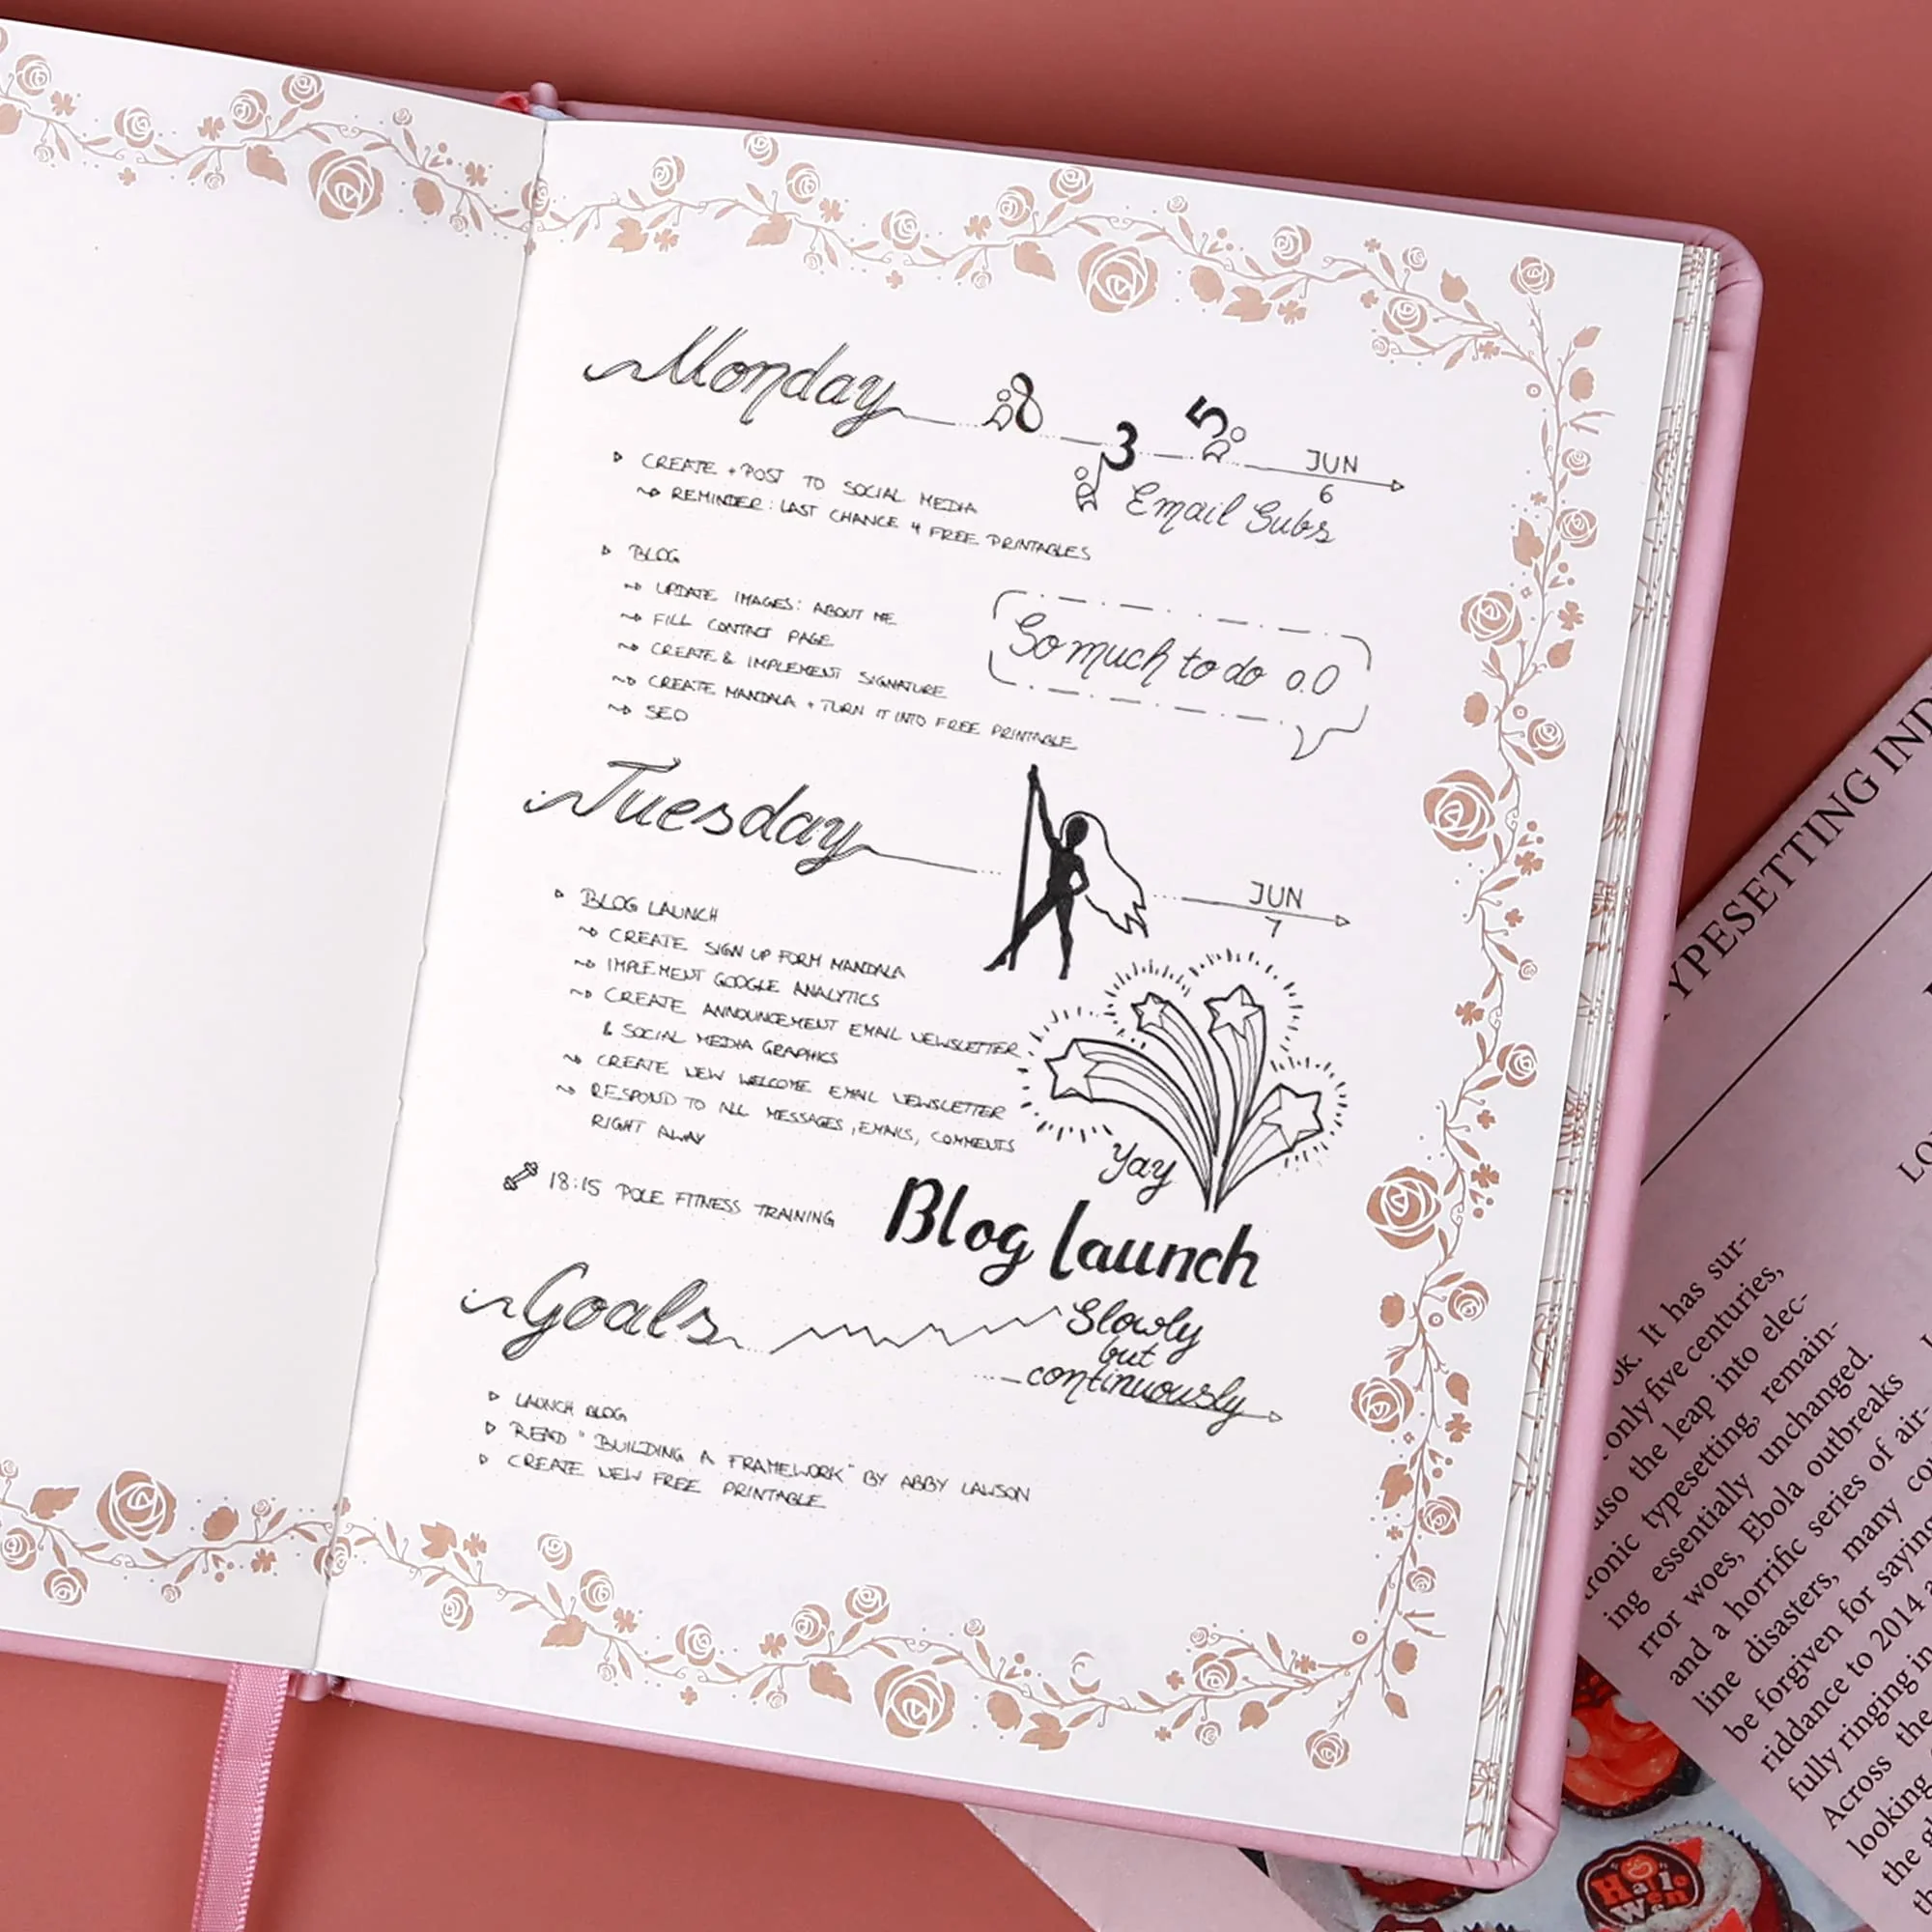 Monday
8 3 5
JUN
6
Email Subs
CREATE + POST TO SOCIAL MEDIA
REMINDER: LAST CHANCE 4 FREE PRINTABLES
BLOG
UPDATE IMAGES: ABOUT ME
FILL CONTACT PAGE
CREATE & IMPLEMENT SIGNATURE
CREATE MANDALA + TURN IT INTO FREE PRINTABLE
SEO
So much to do o.O
Tuesday
JUN
7
BLOG LAUNCH
CREATE SIGN UP FORM MANDALA
IMPLEMENT GOOGLE ANALYTICS
CREATE ANNOUNCEMENT EMAIL NEWSLETTER
& SOCIAL MEDIA GRAPHICS
CREATE NEW WELCOME EMAIL NEWSLETTER
RESPOND TO ALL MESSAGES, EMAILS, COMMENTS
RIGHT AWAY
18:15 POLE FITNESS TRAINING
Yay
Blog launch
Goals
Slowly
but
continuously
LAUNCH BLOG
READ "BUILDING A FRAMEWORK" BY ABBY LAWSON
CREATE NEW FREE PRINTABLE
TYPESETTING IND
LO
ok. It has sur-
only five centuries,
also the leap into elec-
tronic typesetting, remain-
ing essentially unchanged.
rror woes, Ebola outbreaks
and a horrific series of air-
line disasters, many
be forgiven for saying
riddance to 2014
fully ringing in
Across the
looking
the
Hallo
ween